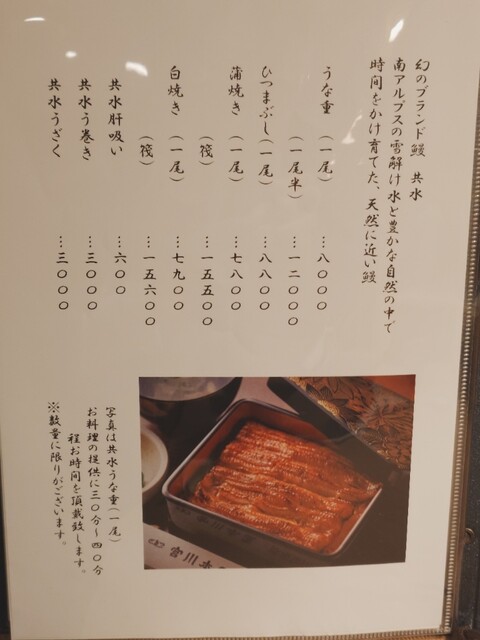 幻のブランド鰻 共水
南アルプスの雪解け水と豊かな自然の中で
時間をかけ育てた、天然に近い鰻
うな重(一尾)…八〇〇〇
(一尾半)…一二〇〇〇
ひつまぶし(一尾)…八八〇〇
蒲焼き(一尾)…七八〇〇
(筏)…一五五〇〇
白焼き(一尾)…七九〇〇
(筏)…一五六〇〇
共水肝吸い…六〇〇
共水う巻き…三〇〇〇
共水うざく…三〇〇〇
写真は共水うな重(一尾)
お料理の提供に三〇分〜四〇分
程お時間を頂戴致します。
※数量に限りがございます。
宮川本